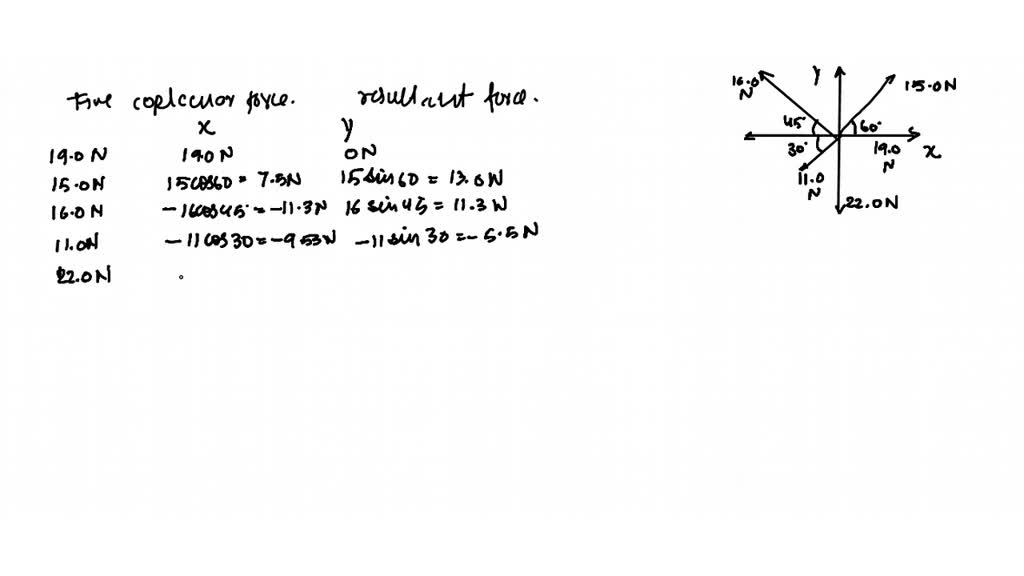 Five coplanar force. resultant force.
x y
19.0 N 19.0 N 0 N
15.0 N 15 cos 60 = 7.5 N 15 sin 60 = 13.0 N
16.0 N -16 cos 45° = -11.3 N 16 sin 45 = 11.3 N
11.0 N -11 cos 30 = -9.53 N -11 sin 30 = -5.5 N
22.0 N
16.0 N
y
15.0 N
45°
60°
30°
19.0 N
x
11.0 N
22.0 N